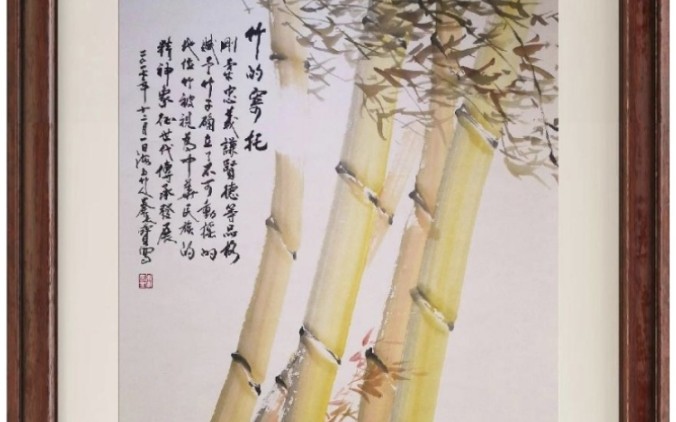 竹的寄托
剛柔忠義謙賢德等品格
賦予竹子確立了不可動搖的
地位竹被視為中華民族的
精神象征世代傳承發展
年十二月一日海上竹人秦寫